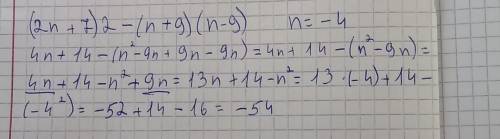 (2n + 7) 2 - (n + 9) (n - 9) n = -4
4n + 14 - (n² - 9n + 9n - 9n) = 4n + 14 - (n² - 9n) =
4n + 14 - n² + 9n = 13n + 14 - n² = 13 · (-4) + 14 -
(-4²) = -52 + 14 - 16 = -54